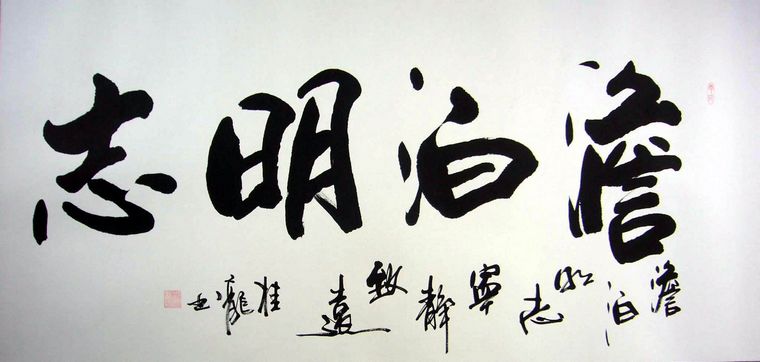 澹泊明志
澹泊明志寧靜致遠 桂龍書